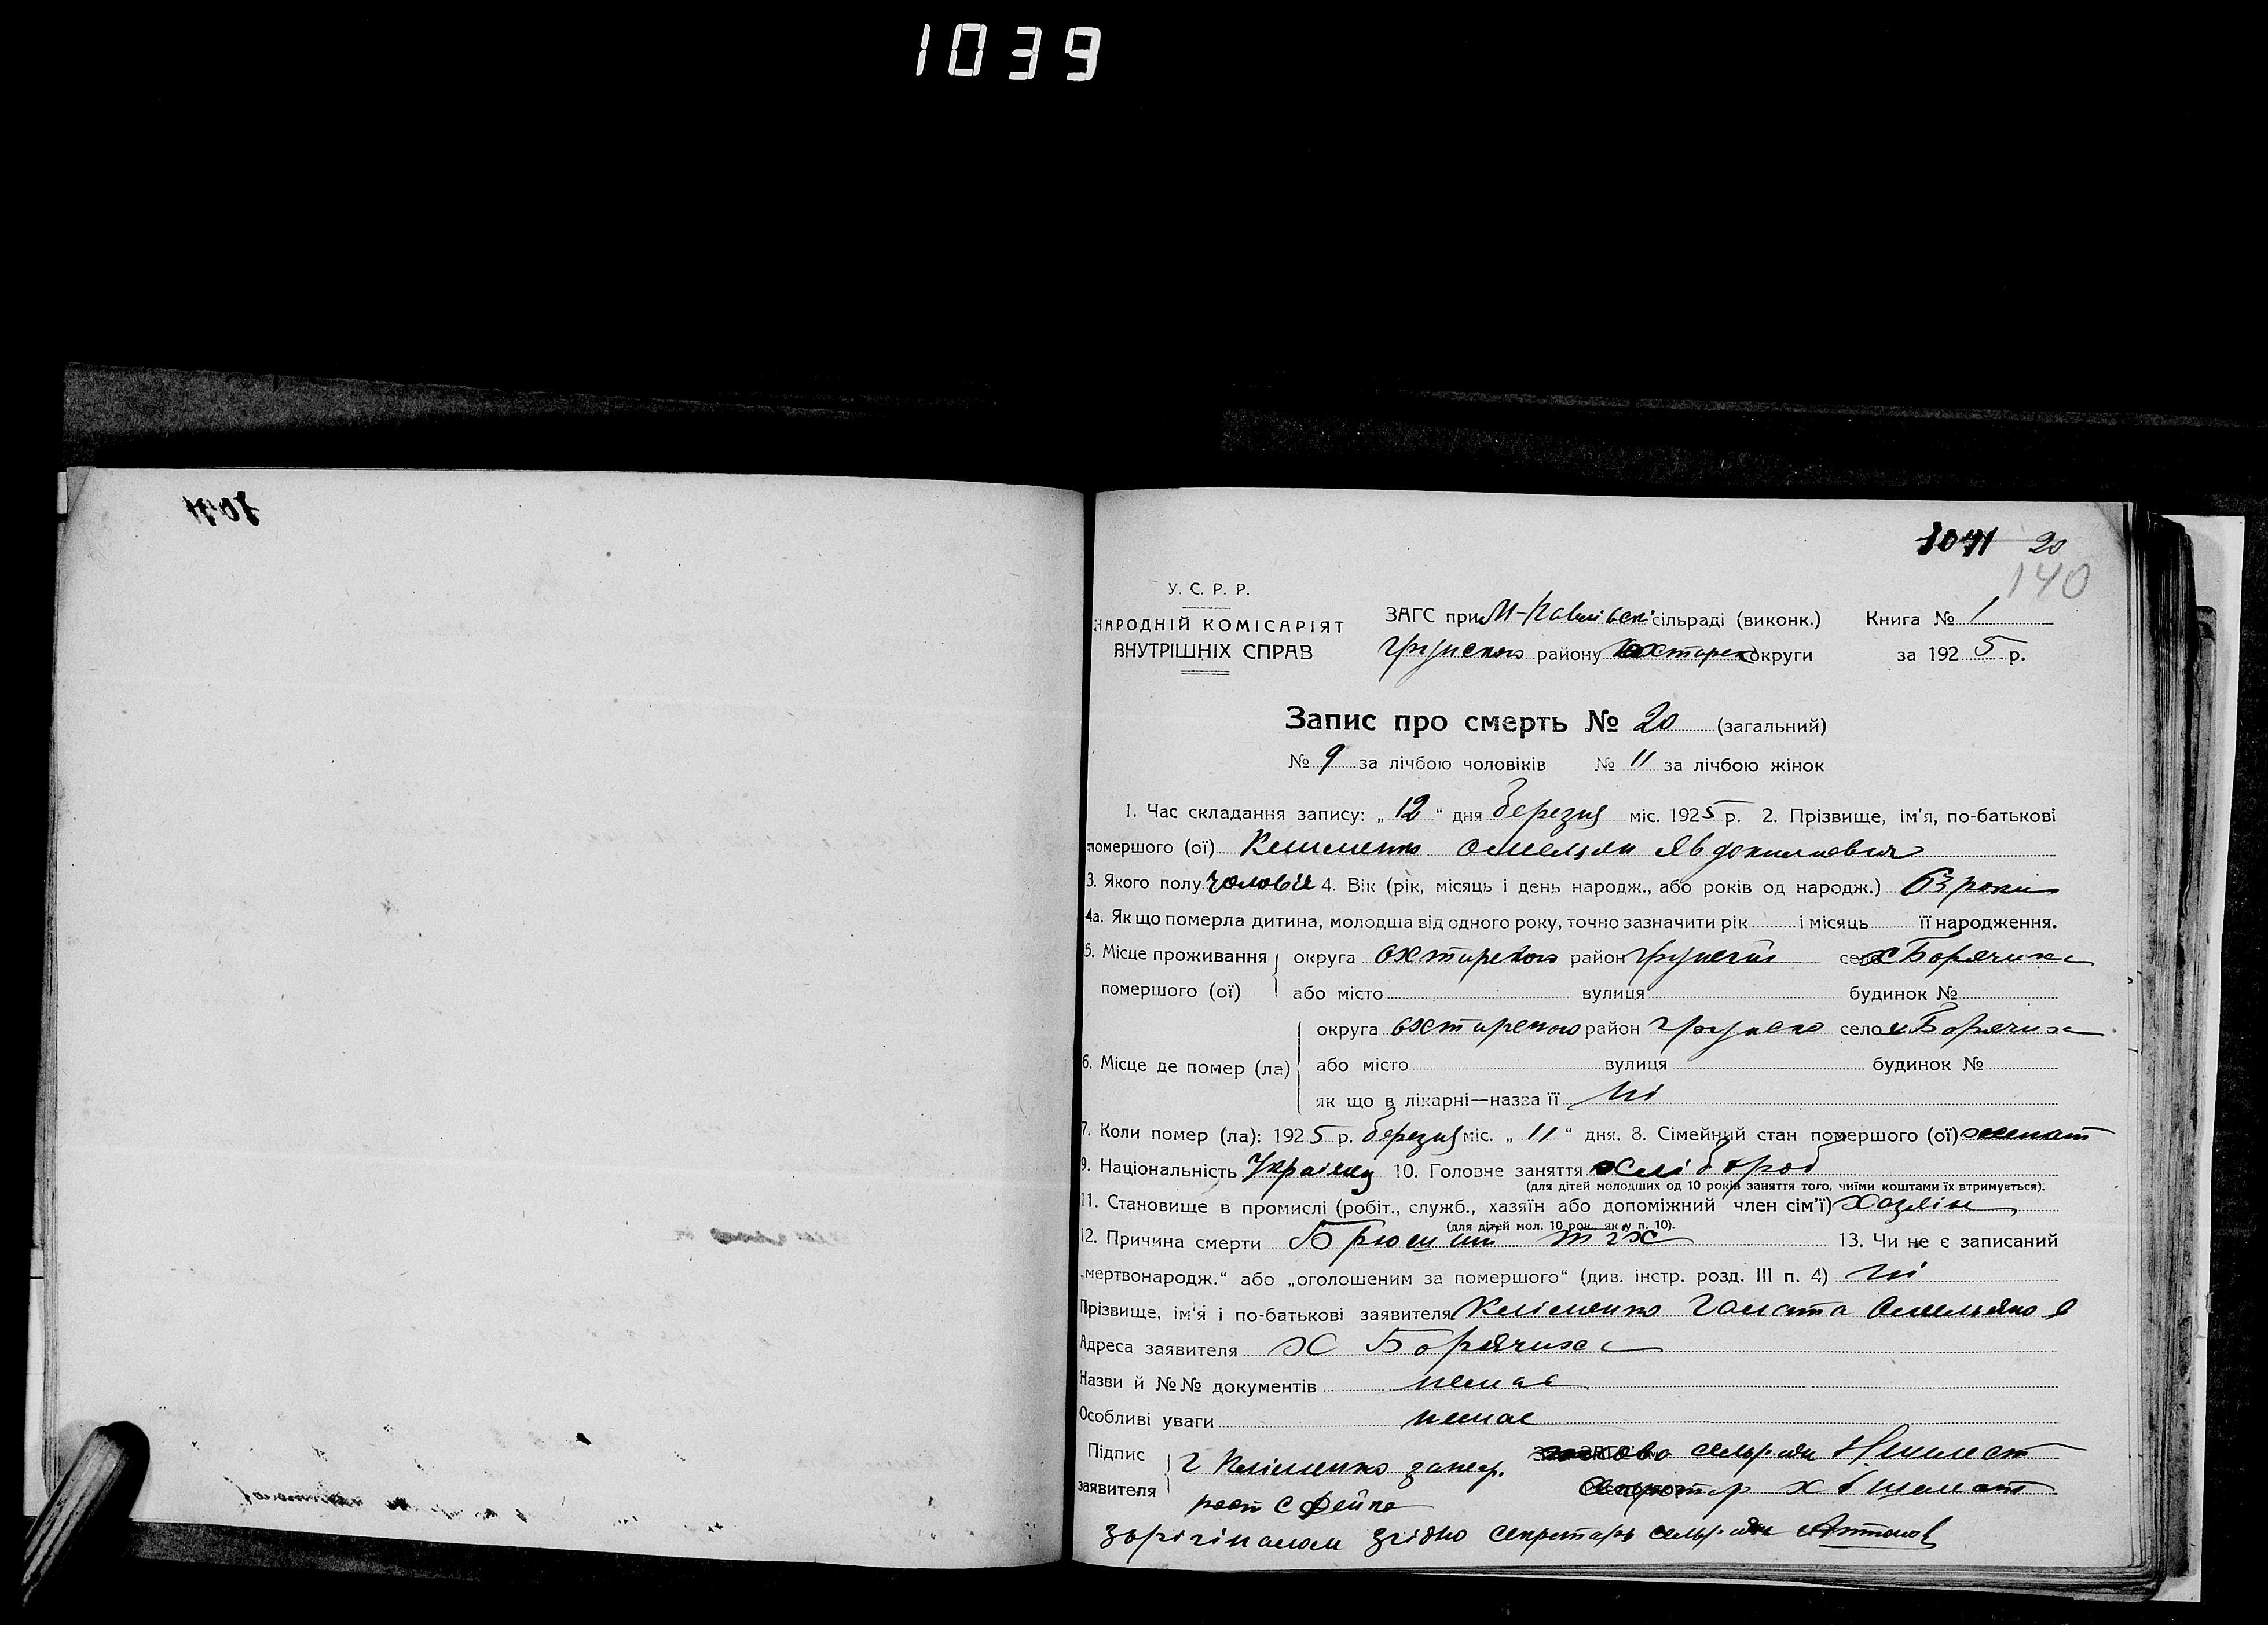 1039
1041 20
140
У. С. Р. Р.
НАРОДНІЙ КОМІСАРІЯТ
ВНУТРІШНІХ СПРАВ
ЗАГС при М-Павлівськ сільраді (виконк.) Книга № 1
Грунского району Охтирск округи за 1925 р.
Запис про смерть № 20 (загальний)
№ 9 за лічбою чоловіків № 11 за лічбою жінок
1. Час складання запису: „12“ дня березня міс. 1925 р. 2. Прізвище, ім'я, по-батькові
помершого (ої) Клименко Омелян Явдокимовия
3. Якого полу чолові 4. Вік (рік, місяць і день народж., або років од народж.) 63 роки
4а. Як що померла дитина, молодша від одного року, точно зазначити рік і місяць її народження.
5. Місце проживання округа Охтирского район Грунскій село х Борячиха
помершого (ої) або місто вулиця будинок №
округа охтирского район Грунско село х Борячиха
6. Місце де помер (ла) або місто вулиця будинок №
як що в лікарні—назва її ні
7. Коли помер (ла): 1925 р. березня міс. „11“ дня. 8. Сімейний стан помершого (ої) женат
9. Національність Українец 10. Головне заняття хлібороб
(для дітей молодших од 10 років заняття того, чиїми коштами їх втримується).
11. Становище в промислі (робіт., служб., хазяїн або допоміжний член сім'ї) хозяїн
(для дітей мол. 10 рок., як у п. 10).
12. Причина смерти Брюсний тіх 13. Чи не є записаний
„мертвонародж.“ або „оголошеним за помершого“ (див. інстр. розд. III п. 4) ні
Прізвище, ім'я і по-батькові заявителя Кліменко Омеляно в
Адреса заявителя Х Борячиха
Назви й №№ документів немає
Особливі уваги немає
Підпис Г Кліменко за негр. голова сельради
заявителя рост С Фейко Секретар
Зорігіналом згідно секретарь сельради Антонов